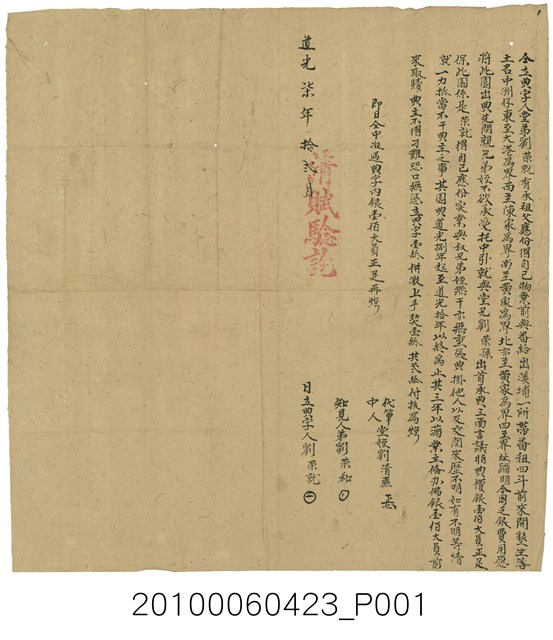 仝立典字人堂弟劉榮就有承祖父應份得自己物業前與番給出溪埔一所帶番租四斗前來開墾坐落
土名中洲仔東至大港為界西至陳家為界南至黃家為界北亦至黃家為界四至界址踏明今因乏銀費用愿
將此園出典先問親兄弟姪不欲承受托中引就與堂兄劉榮孫出首承典三面言議時典價銀壹佰大員正足
保此園係是榮就得自己應份實業與叔兄弟姪無干亦無重張典掛他人以及交關來歷不明如有不明等情
就一力抵當不干典主之事其園典道光捌年起至道光拾年以終為止共三年以滿業主備办佛銀壹佰大員前
來取贖典主不得刁難恐口無憑立典字壹紙併繳上手契壹紙共弍紙付执為炤
即日仝中收過典字內銀壹佰大員正足再炤
代筆堂姪劉清
中人
知見人弟劉榮和
道光柒年拾弍月 日立典字人劉榮就
清賦驗訖
20100060423_P001